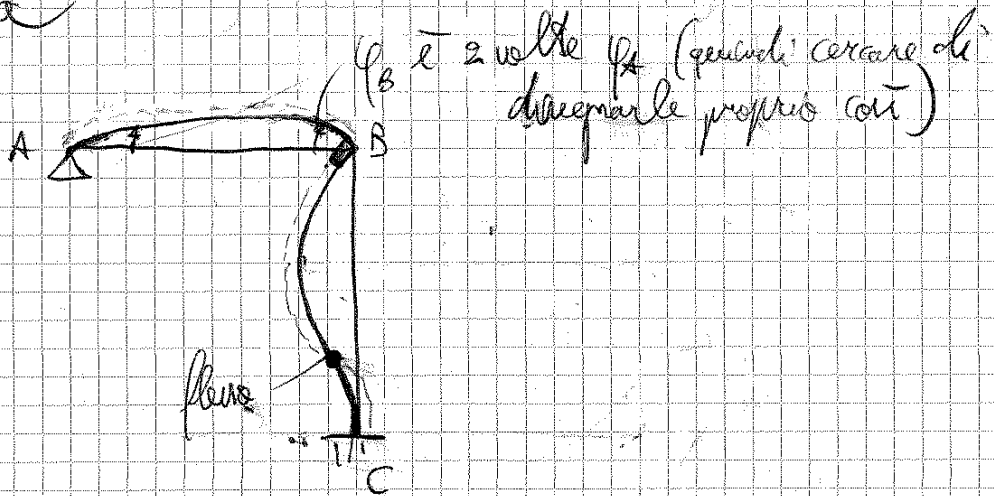 φB è 2 volte φA (quindi cercare di
disegnarle proprio così)
A
B
flesso
C